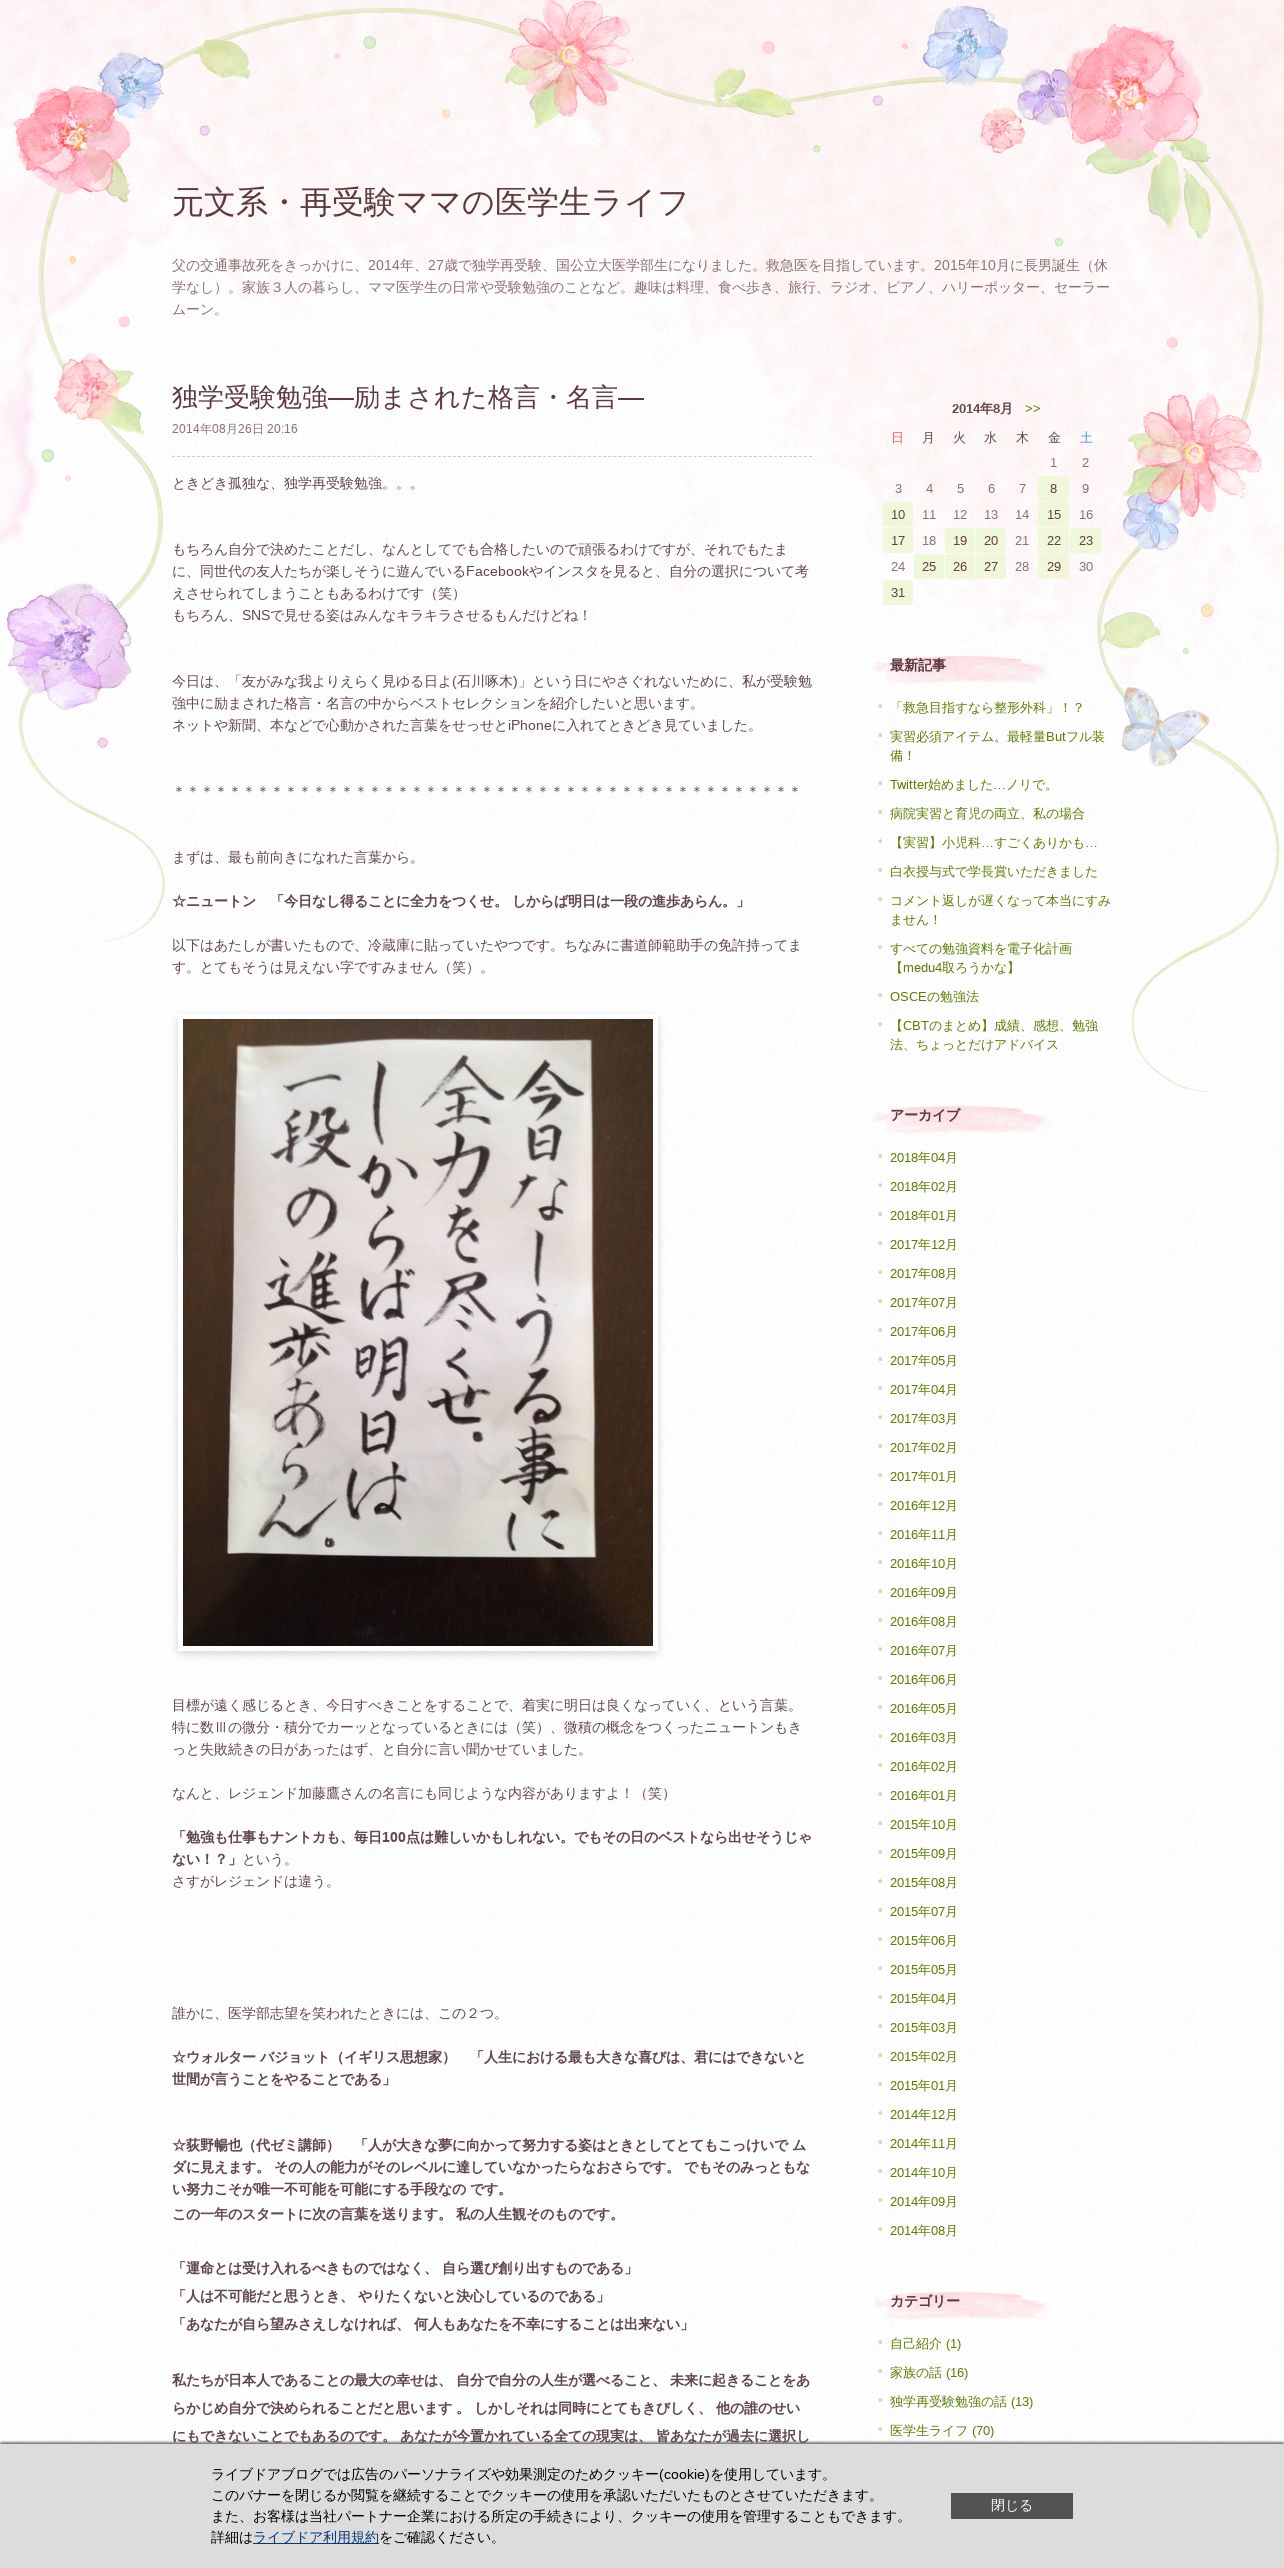 元文系・再受験ママの医学生ライフ
父の交通事故死をきっかけに、2014年、27歳で独学再受験、国公立大医学部生になりました。救急医を目指しています。2015年10月に長男誕生（休
学なし）。家族３人の暮らし、ママ医学生の日常や受験勉強のことなど。趣味は料理、食べ歩き、旅行、ラジオ、ピアノ、ハリーポッター、セーラー
ムーン。
独学受験勉強―励まされた格言・名言―
2014年08月26日 20:16
ときどき孤独な、独学再受験勉強。。。
もちろん自分で決めたことだし、なんとしてでも合格したいので頑張るわけですが、それでもたま
に、同世代の友人たちが楽しそうに遊んでいるFacebookやインスタを見ると、自分の選択について考
えさせられてしまうこともあるわけです（笑）
もちろん、SNSで見せる姿はみんなキラキラさせるもんだけどね！
今日は、「友がみな我よりえらく見ゆる日よ(石川啄木)」という日にやさぐれないために、私が受験勉
強中に励まされた格言・名言の中からベストセレクションを紹介したいと思います。
ネットや新聞、本などで心動かされた言葉をせっせとiPhoneに入れてときどき見ていました。
＊＊＊＊＊＊＊＊＊＊＊＊＊＊＊＊＊＊＊＊＊＊＊＊＊＊＊＊＊＊＊＊＊＊＊＊＊＊＊＊＊＊＊＊＊
まずは、最も前向きになれた言葉から。
☆ニュートン　「今日なし得ることに全力をつくせ。 しからば明日は一段の進歩あらん。」
以下はあたしが書いたもので、冷蔵庫に貼っていたやつです。ちなみに書道師範助手の免許持ってま
す。とてもそうは見えない字ですみません（笑）。
今日なしうる事に
全力を尽くせ。
しからば明日は
一段の進歩あらん。
目標が遠く感じるとき、今日すべきことをすることで、着実に明日は良くなっていく、という言葉。
特に数Ⅲの微分・積分でカーッとなっているときには（笑）、微積の概念をつくったニュートンもき
っと失敗続きの日があったはず、と自分に言い聞かせていました。
なんと、レジェンド加藤鷹さんの名言にも同じような内容がありますよ！（笑）
「勉強も仕事もナントカも、毎日100点は難しいかもしれない。でもその日のベストなら出せそうじゃ
ない！？」という。
さすがレジェンドは違う。
誰かに、医学部志望を笑われたときには、この２つ。
☆ウォルター バジョット（イギリス思想家）　「人生における最も大きな喜びは、君にはできないと
世間が言うことをやることである」
☆荻野暢也（代ゼミ講師）　「人が大きな夢に向かって努力する姿はときとしてとてもこっけいで ム
ダに見えます。 その人の能力がそのレベルに達していなかったらなおさらです。 でもそのみっともな
い努力こそが唯一不可能を可能にする手段なの です。
この一年のスタートに次の言葉を送ります。 私の人生観そのものです。
「運命とは受け入れるべきものではなく、 自ら選び創り出すものである」
「人は不可能だと思うとき、 やりたくないと決心しているのである」
「あなたが自ら望みさえしなければ、 何人もあなたを不幸にすることは出来ない」
私たちが日本人であることの最大の幸せは、 自分で自分の人生が選べること、 未来に起きることをあ
らかじめ自分で決められることだと思います 。 しかしそれは同時にとてもきびしく、 他の誰のせい
にもできないことでもあるのです。 あなたが今置かれている全ての現実は、 皆あなたが過去に選択し
2014年8月 >>
日 月 火 水 木 金 土
1 2
3 4 5 6 7 8 9
10 11 12 13 14 15 16
17 18 19 20 21 22 23
24 25 26 27 28 29 30
31
最新記事
「救急目指すなら整形外科」！？
実習必須アイテム。最軽量Butフル装
備！
Twitter始めました…ノリで。
病院実習と育児の両立、私の場合
【実習】小児科…すごくありかも…
白衣授与式で学長賞いただきました
コメント返しが遅くなって本当にすみ
ません！
すべての勉強資料を電子化計画
【medu4取ろうかな】
OSCEの勉強法
【CBTのまとめ】成績、感想、勉強
法、ちょっとだけアドバイス
アーカイブ
2018年04月
2018年02月
2018年01月
2017年12月
2017年08月
2017年07月
2017年06月
2017年05月
2017年04月
2017年03月
2017年02月
2017年01月
2016年12月
2016年11月
2016年10月
2016年09月
2016年08月
2016年07月
2016年06月
2016年05月
2016年03月
2016年02月
2016年01月
2015年10月
2015年09月
2015年08月
2015年07月
2015年06月
2015年05月
2015年04月
2015年03月
2015年02月
2015年01月
2014年12月
2014年11月
2014年10月
2014年09月
2014年08月
カテゴリー
自己紹介 (1)
家族の話 (16)
独学再受験勉強の話 (13)
医学生ライフ (70)
ライブドアブログでは広告のパーソナライズや効果測定のためクッキー(cookie)を使用しています。
このバナーを閉じるか閲覧を継続することでクッキーの使用を承認いただいたものとさせていただきます。
また、お客様は当社パートナー企業における所定の手続きにより、クッキーの使用を管理することもできます。
詳細はライブドア利用規約をご確認ください。
閉じる